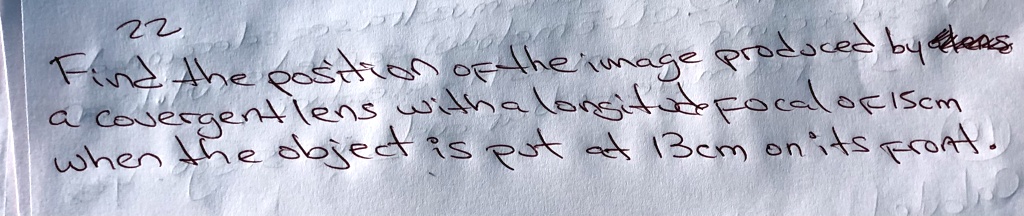 22
Find the position of the image produced by
a covergent lens with a longitude focal of 15cm
when the object is put at 13cm on its front.